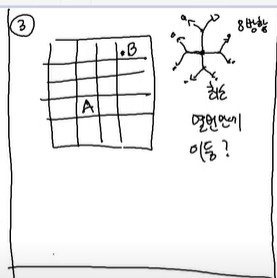 ③
.B
A
8방향
최소
몇번만에
이동?